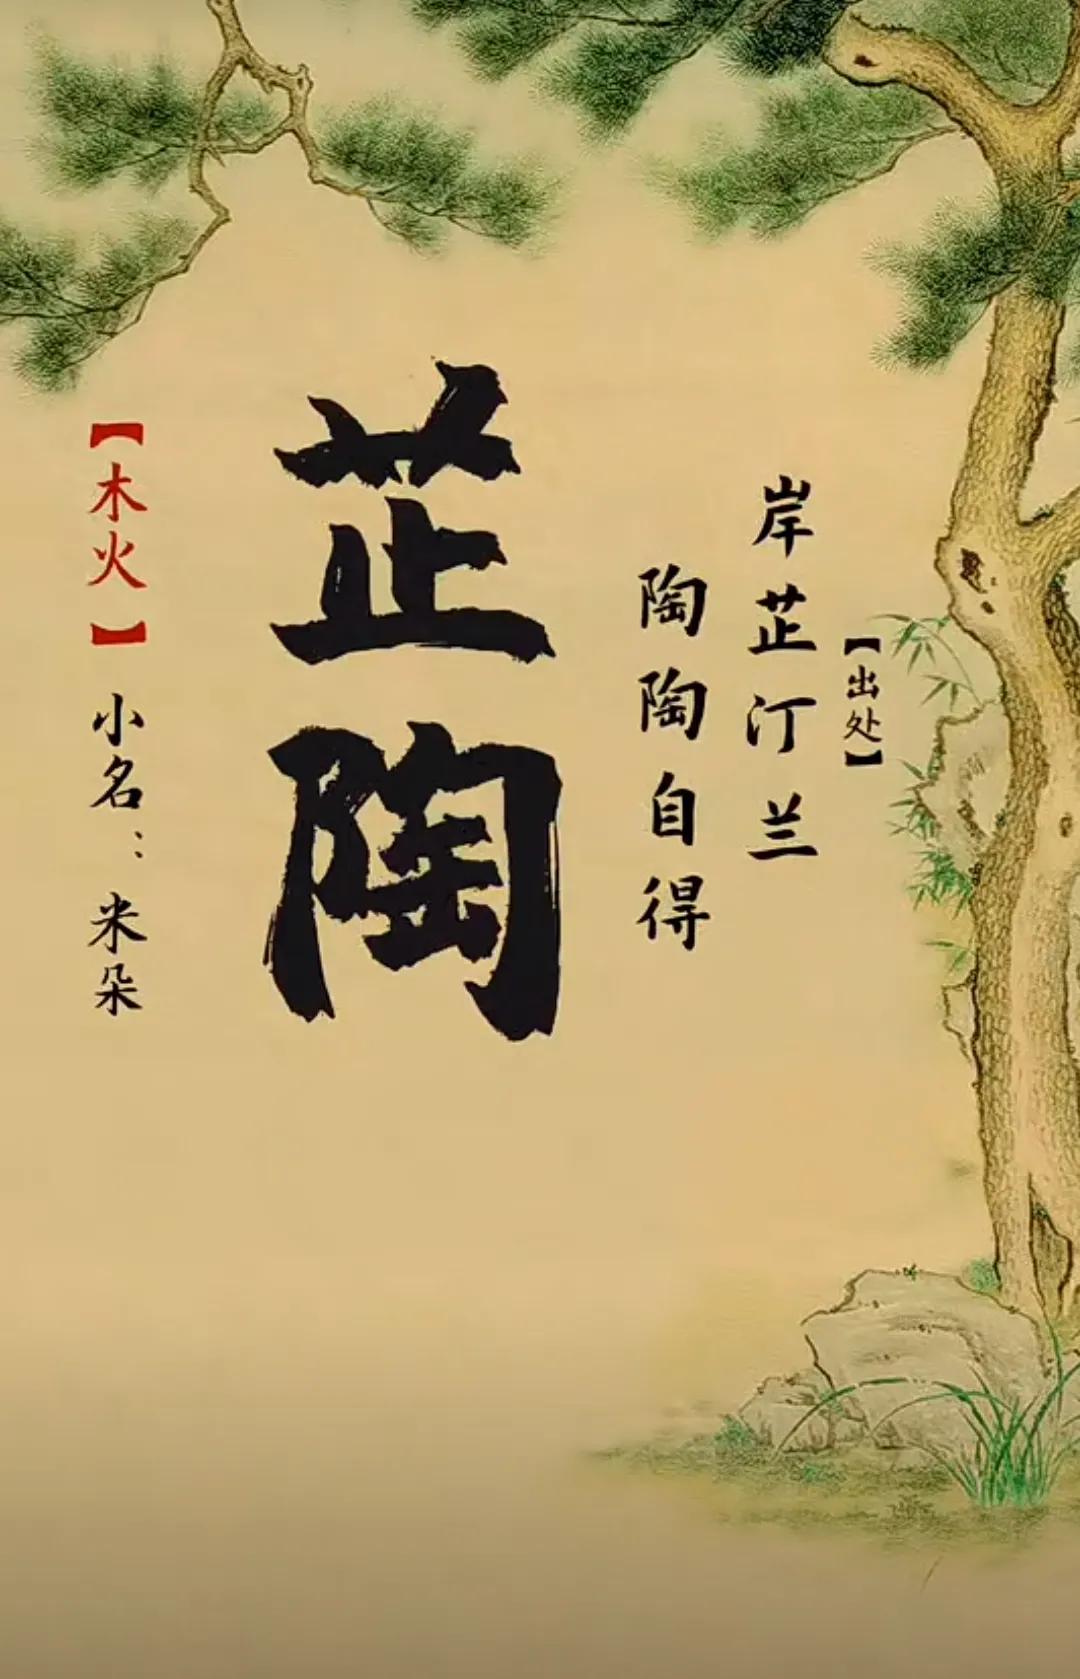 【出处】
岸芷汀兰
陶陶自得
芷陶
【木火】小名：米朵